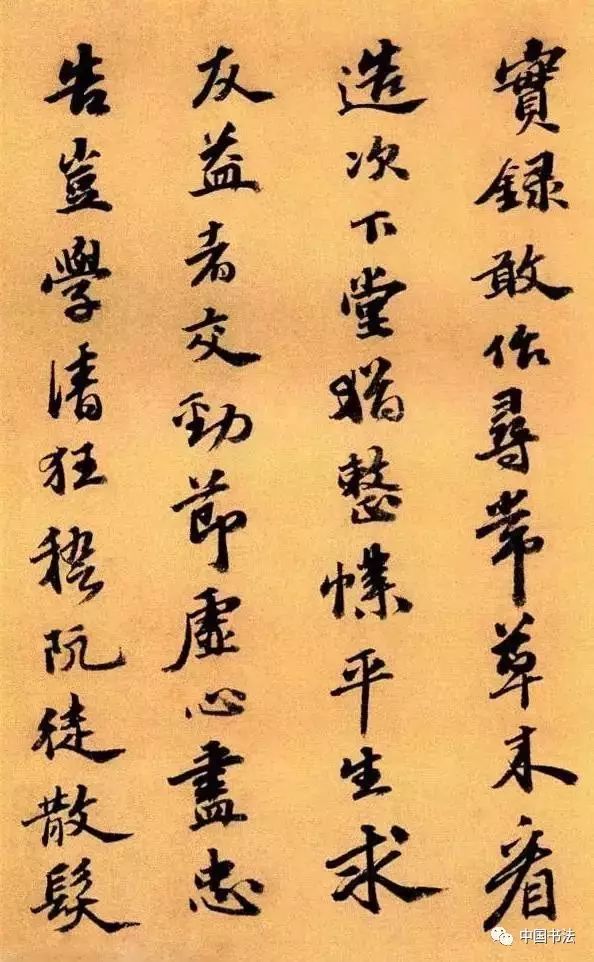 實録敢作尋常草木看
造次下堂猶整幞平生求
友益者交勁節虛心盡忠
告豈學清狂嵇阮徒散髮
中国书法